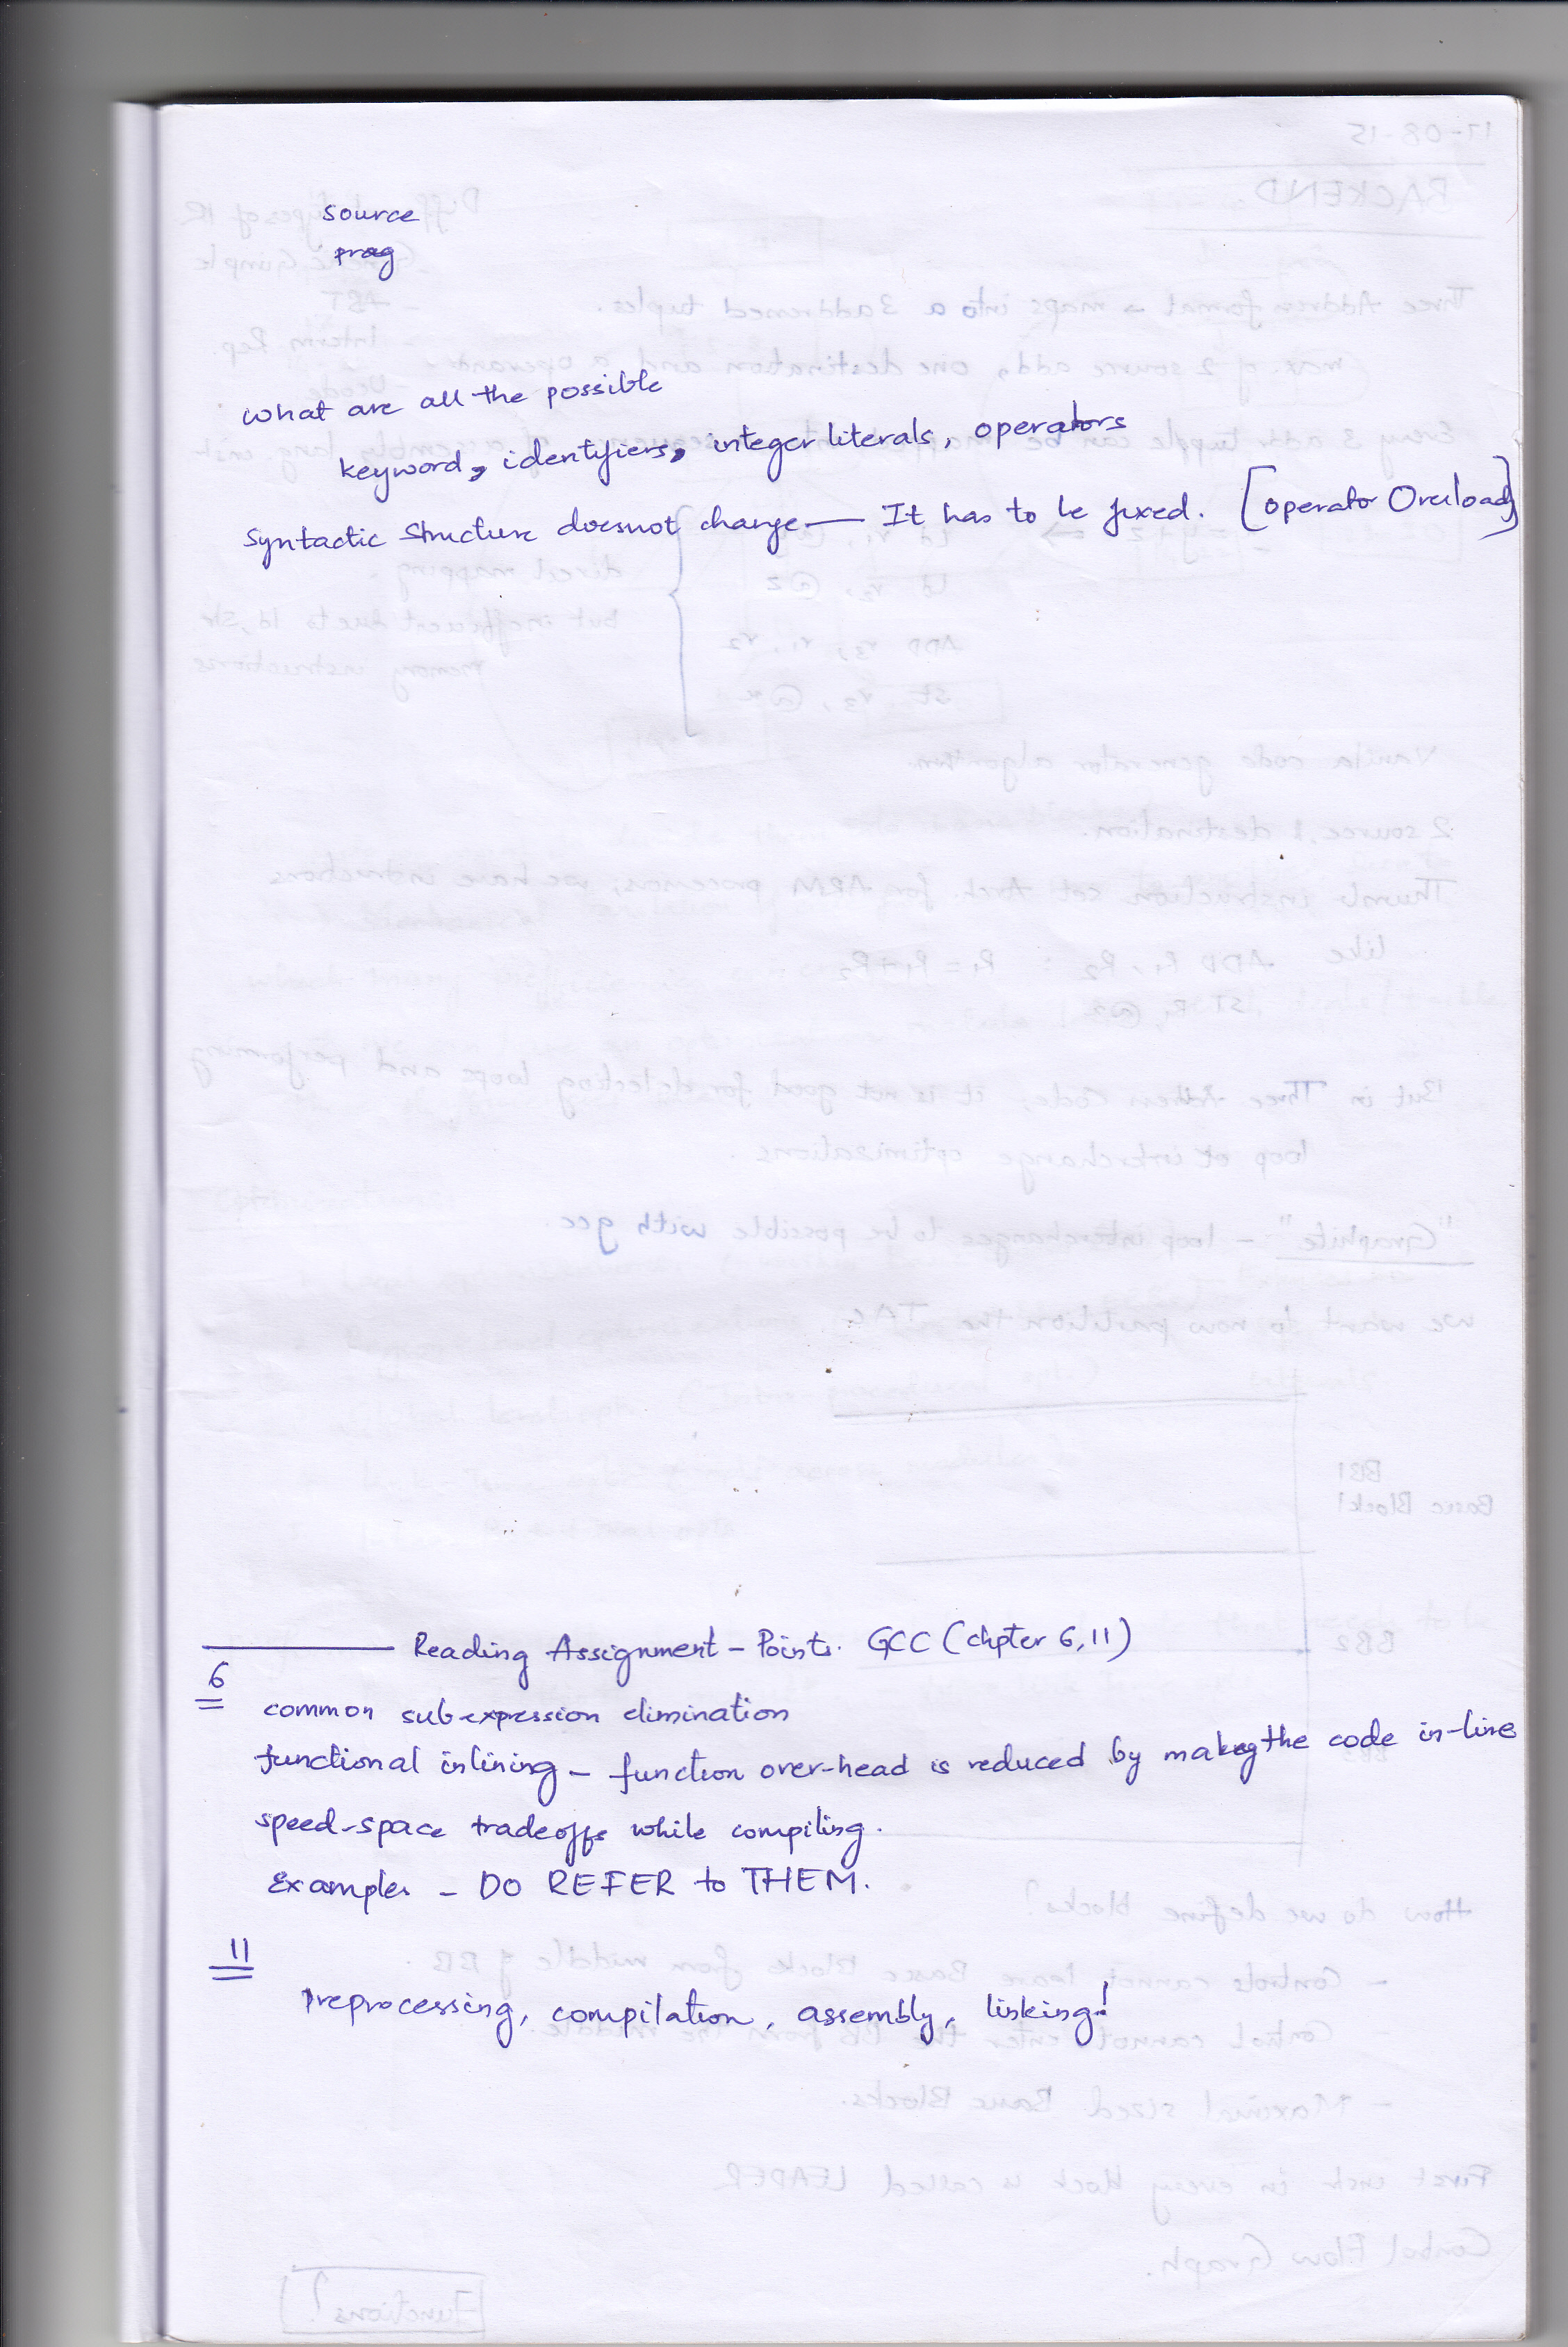 source
prog
what are all the possible
keyword, identifiers, integer literals, operators
syntactic structure doesnot change — It has to be fixed. [operator Overload]
Reading Assignment – Points. GCC (chpter 6, 11)
6
common subexpression elimination
functional inlining – function over-head is reduced by making the code in-line
speed-space tradeoffs while compiling.
Examples – DO REFER to THEM.
11
Preprocessing, compilation, assembly, linking!